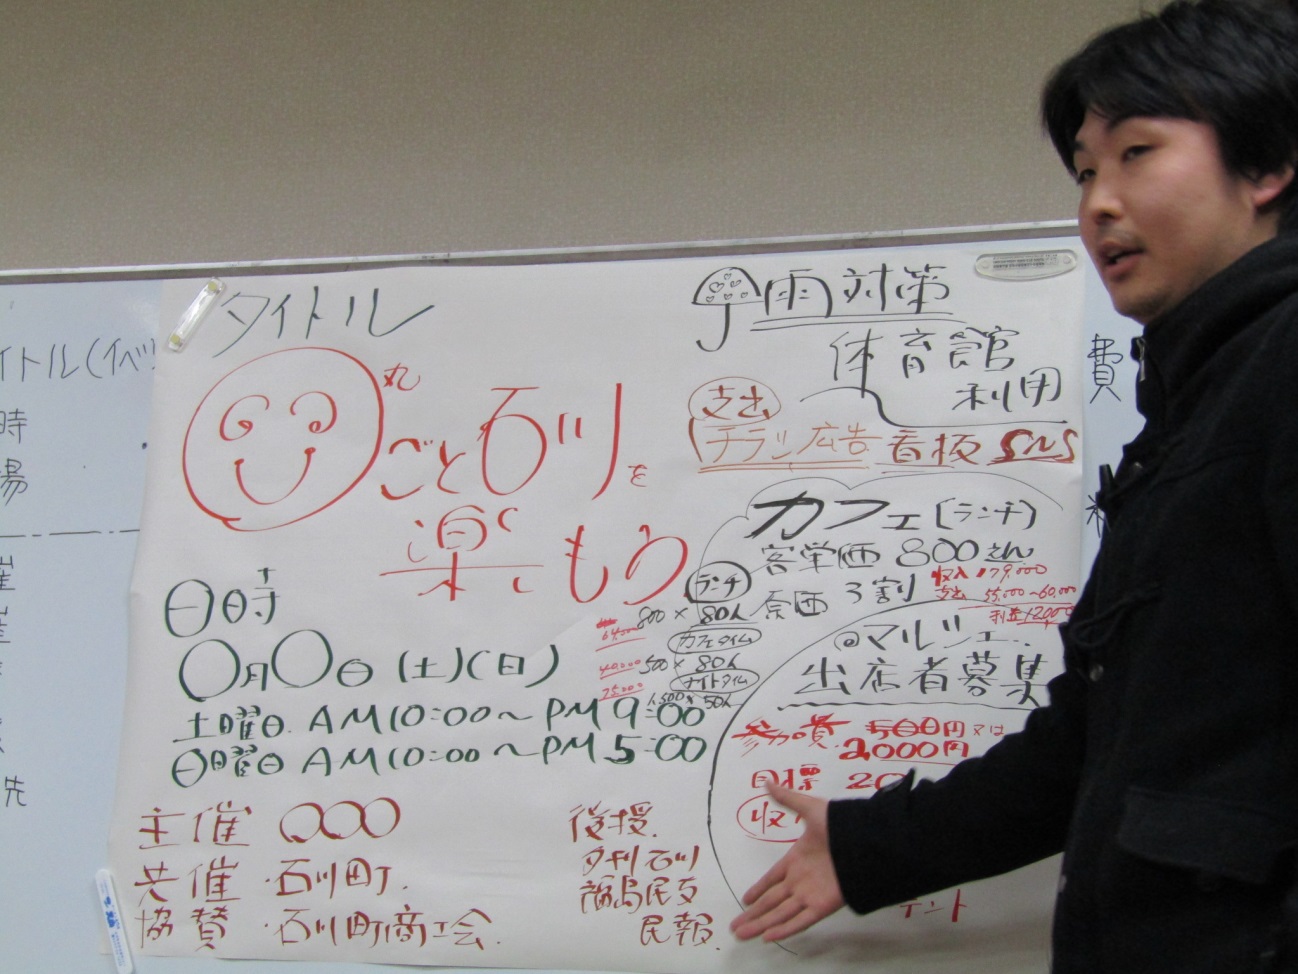 タイトル
丸
ごと石川を
楽しもう
日時
〇月〇日(土)(日)
土曜日 AM10:00〜PM9:00
日曜日 AM10:00〜PM5:00
主催 〇〇〇
共催・石川町.
協賛・石川町商工会.
後援.
夕刊石川
福島民友
民報.
雨対策
体育館
利用
支出
チラシ広告 看板 SNS
カフェ(ランチ)
客単価 800えん
原価 3割
収入 179,000
支出 55,000〜60,000
利益
ランチ
800×80人
カフェタイム
40,000 500×80人
ナイトタイム
75000 1,500×50人
@マルシェ.
出店者募集
参加費 500円又は
2,000円
目標 20
収
テント
イトル(イベ
時
場
催
催
先
費